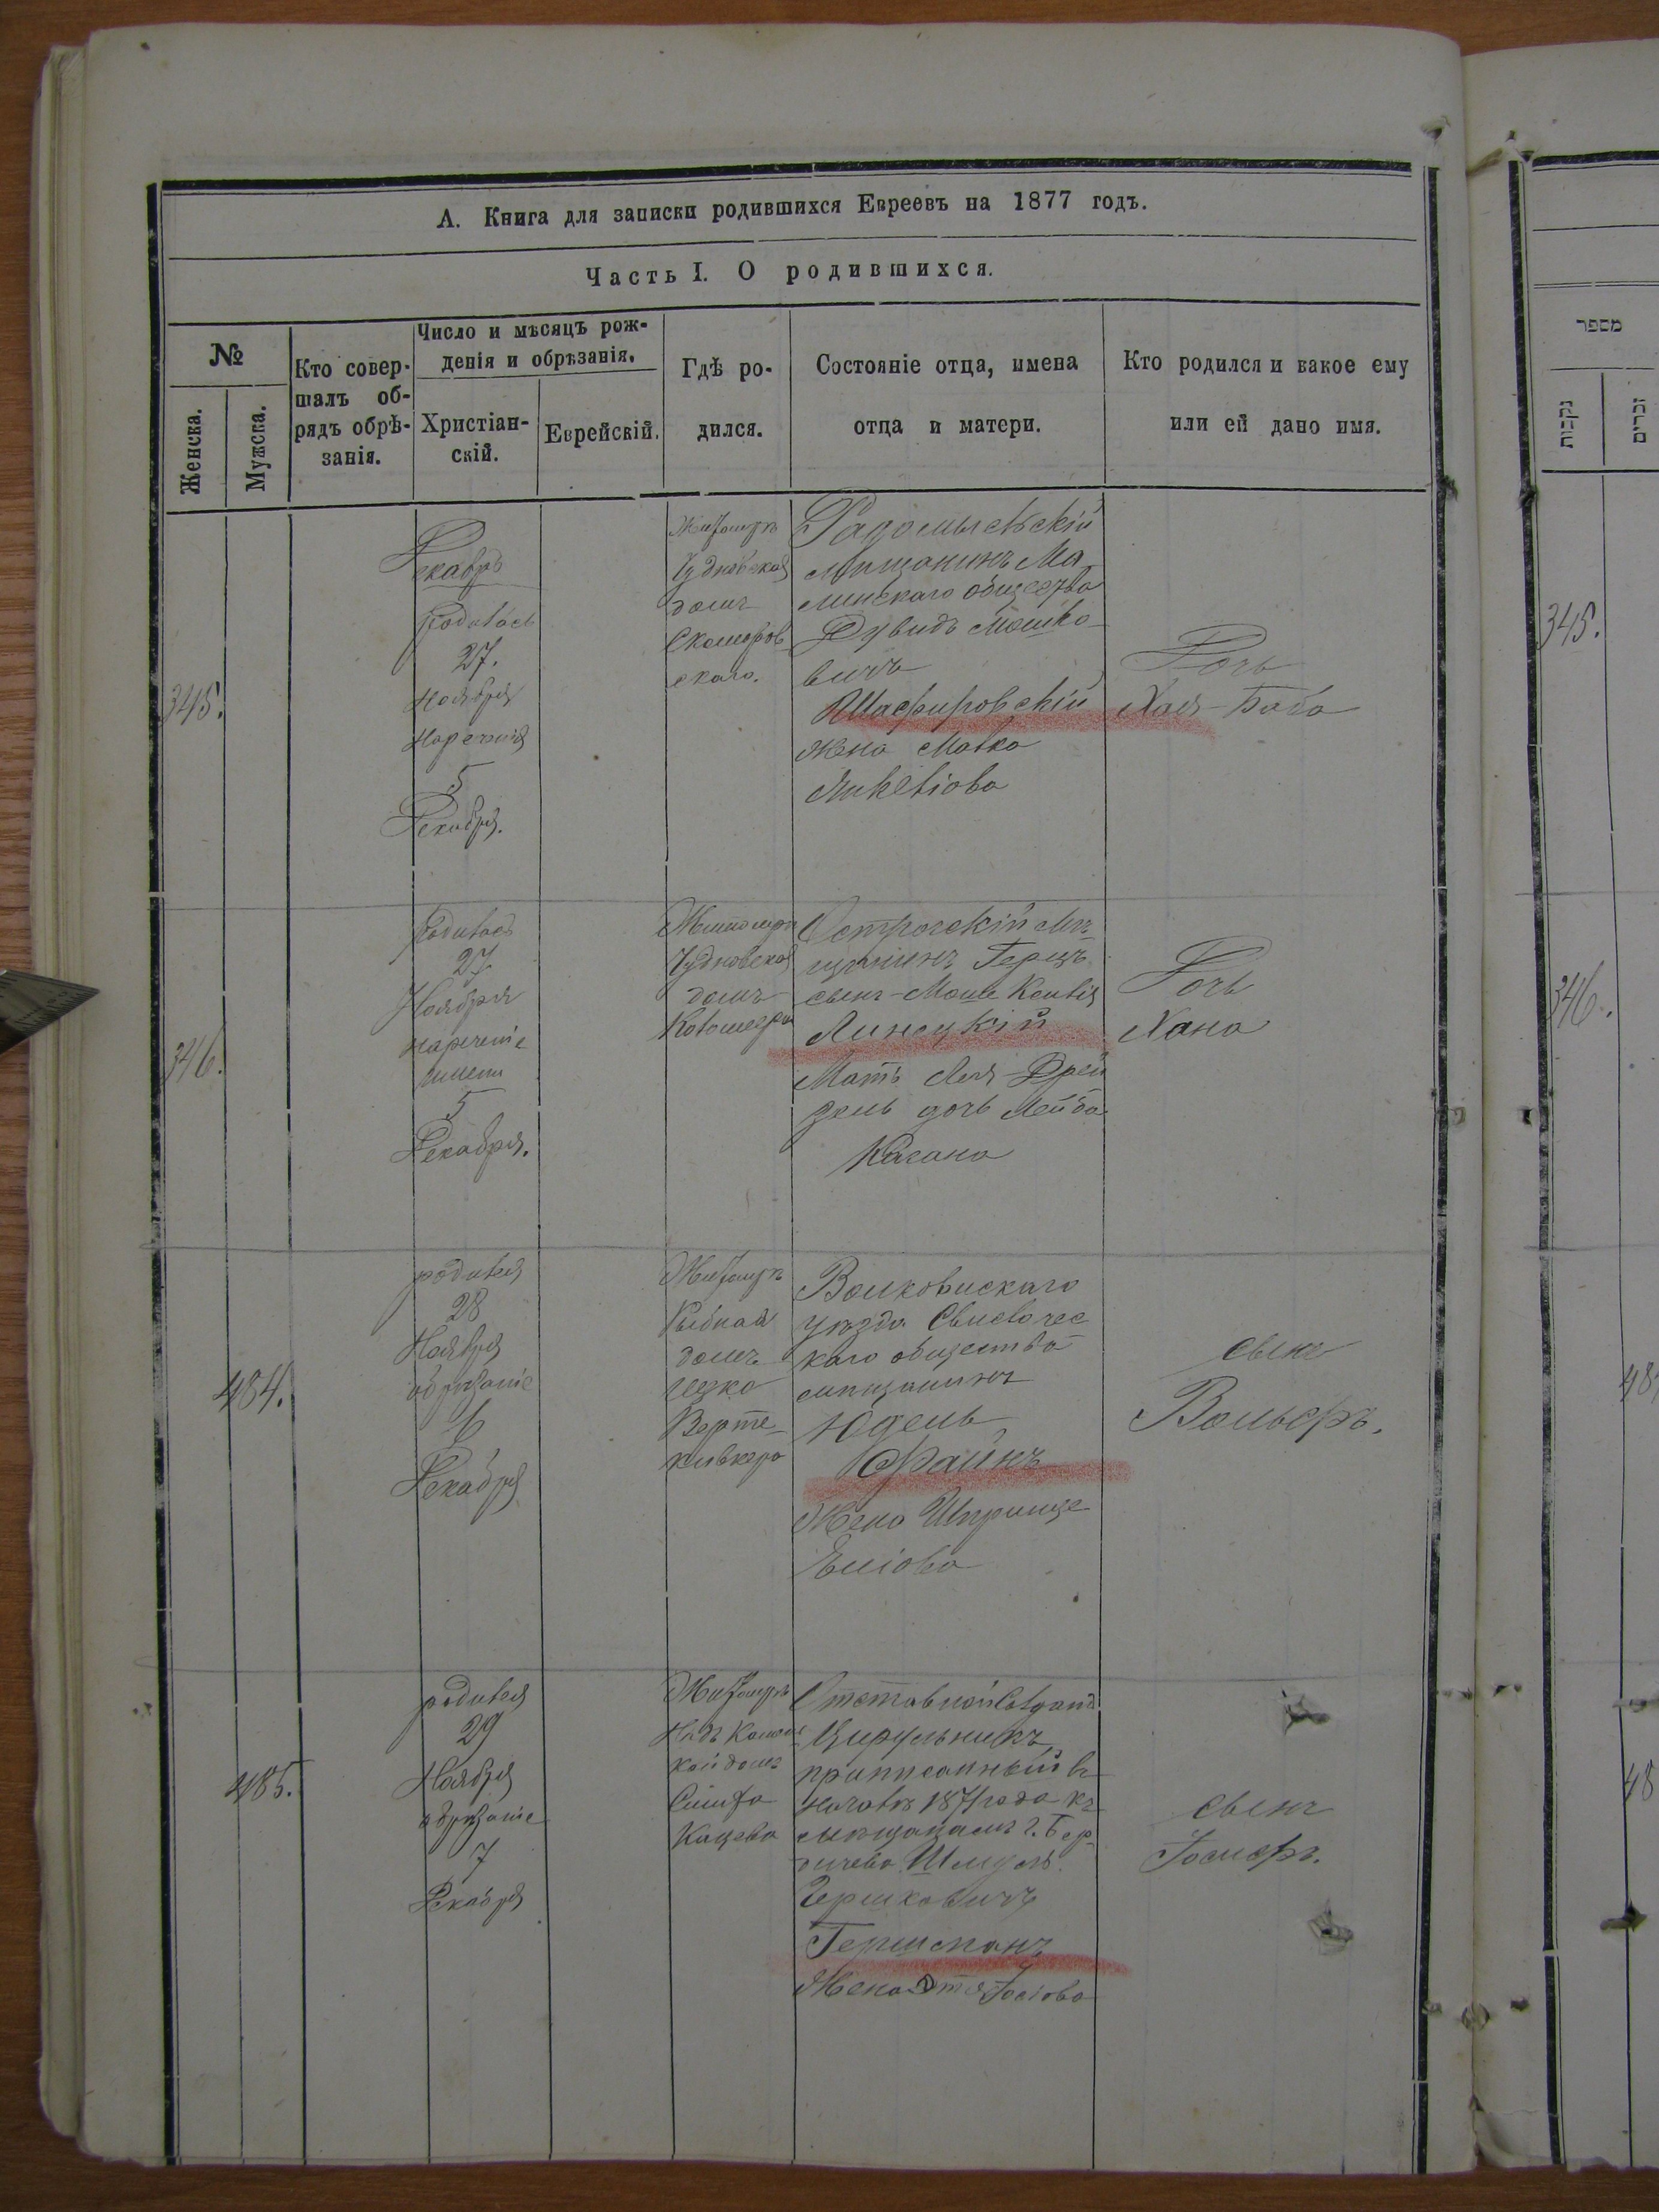 А. Книга для записки родившихся Евреевъ на 1877 годъ.
Часть I. О родившихся.
№
Женска.
Мужска.
Кто совер-
шалъ об-
рядъ обрѣ-
занія.
Число и мѣсяцъ рож-
денія и обрѣзанія.
Христіан-
скій.
Еврейскій.
Гдѣ ро-
дился.
Состояніе отца, имена
отца и матери.
Кто родился и какое ему
или ей дано имя.
345.
Декабрь
родилась
27.
Ноября
Наречения
5
Декабря.
Житомиръ
Чудновская
домъ
Скоморов
скаго.
Радомысльскій
мѣщанинъ Ма
линскаго общества
Дувидъ Мошко
вичъ
Шафировскій
жена Малка
Янкелiова
Дочь
Хая-Баба
346.
родилась
27
Ноября
наречение
имени
5
Декабря.
Житомиръ
Чудновская
домъ
Острогскій мѣ
щанинъ Герцъ
сынъ Моше Келья
Линецкій
Мать Лея-Дрей
зель дочь Лейба
Кагана
Дочь
Хана
484.
родился
28
Ноября
обрѣзаніе
6
Декабря
Житомиръ
Рыбная
домъ
Ицка
Верте
Волковискаго
уѣзда Свислочес
каго общества
мѣщанинъ
Юдель
Файнъ
Жена Шпринце
Еліова
сынъ
Вольфъ.
485.
родился
29
Ноября
обрѣзаніе
7
Декабря
Житомиръ
домъ
Кацева
Отставной
Цирульникъ
приписанный въ
началѣ 1871 года къ
мѣщанамъ г. Бер
дичева Шмуль
Гершковичъ
Гершманъ
Жена Этя Іосіова
сынъ
Іосифъ.
מספר
נקבות
זכרים
345.
346.
48
48